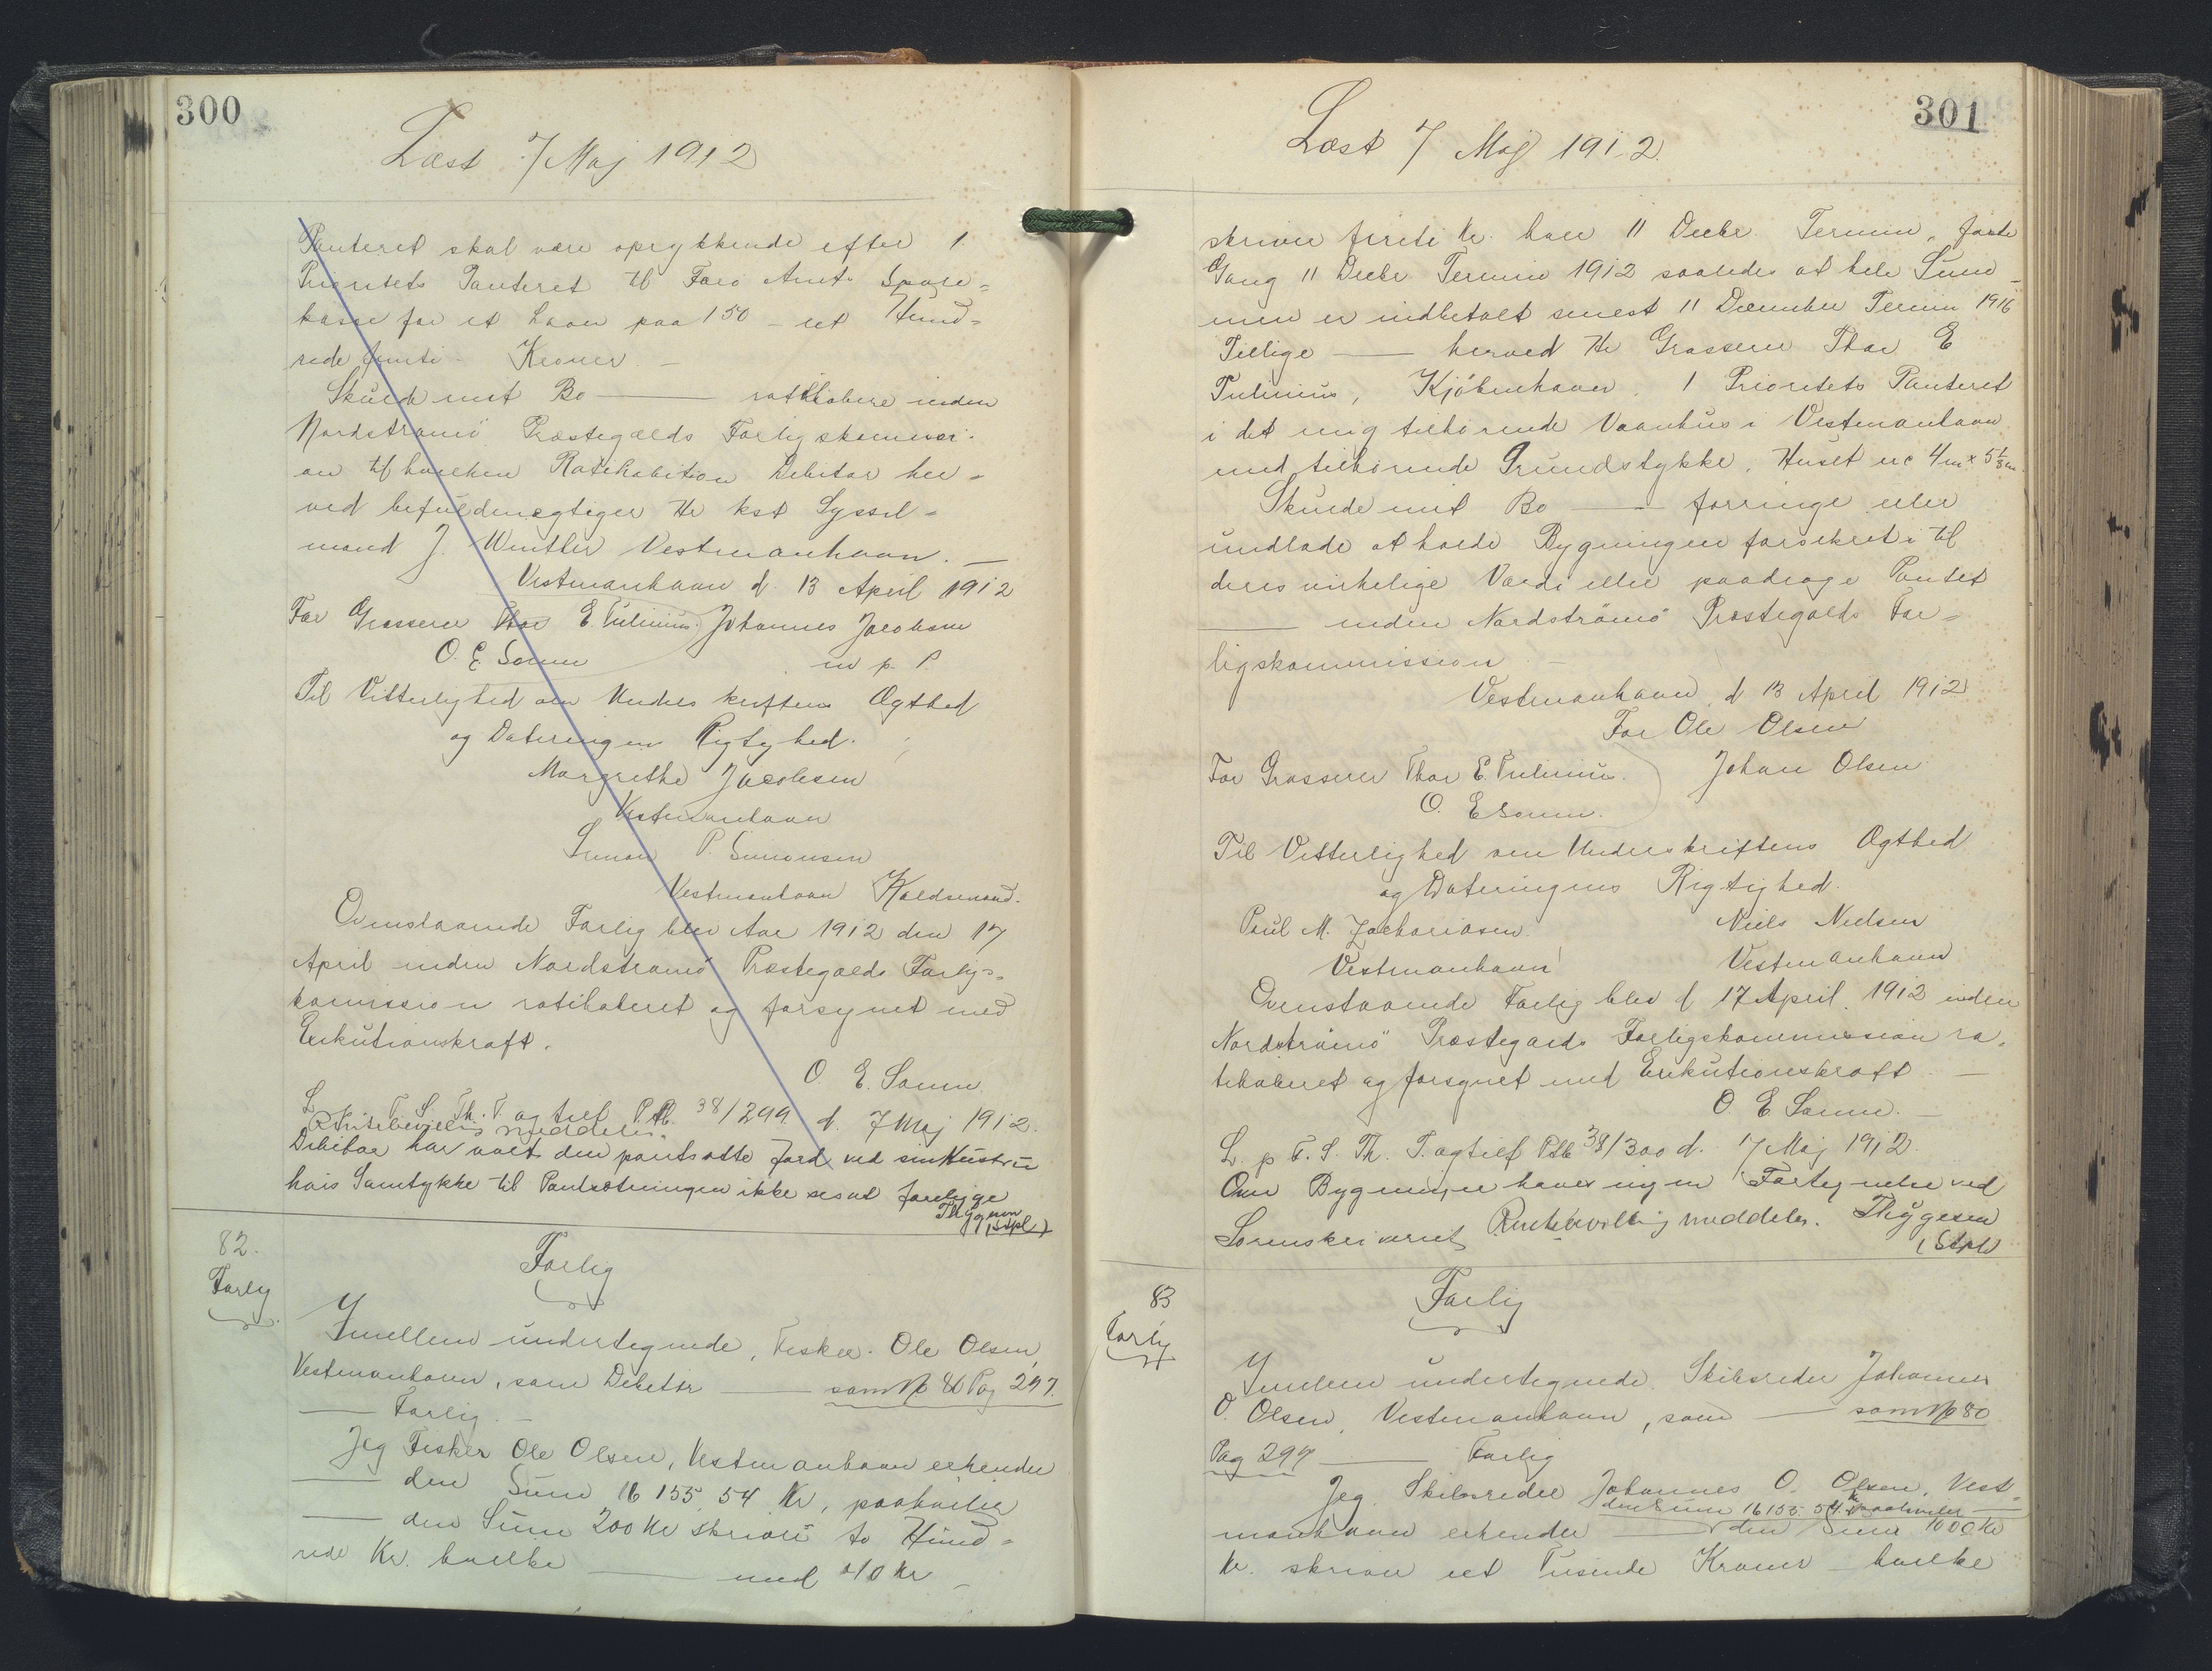 300
Læst 7 Maj 1912
Panteret skal være oprykkende efter 1
Prioritets Panteret til Færø Amts Spare=
kasse for et Laan paa 150 – et Hund=
rede femti – Kroner –
Skulde mit Bo —— ratihabere inden
Nordstrømø Præstegælds Forligskommissi-
on til hvilken Ratihabition Debitor her=
ved befuldmægtiger Hr kst Syssel=
mand J. Winther Vestmanhavn. —
Vestmanhavn d. 13 April 1912
For Grosserer Thor E. Tulinius. Johannes Jacobsen
O. E. Sonne m p. P.
Til Vitterlighed om Underskriftens Ægthed
og Dateringens Rigtighed.
Margrethe Jacobsen
Vestmanhavn
Simon P. Simonsen
Vestmanhavn Holdsmand.
Ovenstaaende Forlig blev Aar 1912 den 17
April inden Nordstrømø Præstegælds Forligs=
komission ratihaberet og forsynet med
Exekutionskraft.
O. E. Sonne
L. p. F. S. Th. T. og tilf P.tb. 38/299 d. 7 Maj 1912.
Rentebevilling meddeles.
Debitor har solt den pantsatte Jord ved sin Hustru
hvis Samtykke til Pantsætningen ikke ses at foreligge
Thygesen
(Stpl)
82.
Forlig
Forlig
Imellem undertegnede, Fisker Ole Olsen,
Vestmanhavn, som Debitor —— som No 80 Pag 297.
—— Forlig. –
Jeg Fisker Ole Olsen, Vestmanhavn erkender
—— den Sum 16 155,54 Kr, paahviler
—— den Sum 200 Kr skriver to Hund=
rede Kr. hvilke —— med 40 Kr –
301
Læst 7 Maj 1912.
skriver fireti Kr. hver 11 Decbr. Termin, første
Gang 11 Decbr Termin 1912 saaledes at hele Sum=
men er indbetalt senest 11 December Termin 1916
Tillige —— herved Hr Grosserer Thor E
Tulinius, Kjöbenhavn, 1 Prioritets Panteret
i det mig tilhørende Vaanhus i Vestmanhavn
med tilhörende Grundstykke. Huset er
Skulde mit Bo —— forringe eller
undlade at holde Bygningen forsikret i til
deres virkelige Værdi eller paadrage Pantet
—— inden Nordströmö Præstegælds For=
ligskommission –
Vestmanhavn d 13 April 1912
For Ole Olsen
For Grosserer Thor E. Tulinius. Johan Olsen
O. E Sonne.
Til Vitterlighed om Underskriftens Ægthed
og Dateringens Rigtighed.
Poul M. Zachariasen. Niels Nielsen
Vestmanhavn Vestmanhavn
Ovenstaaende Forlig blev d 17 April 1912 inden
Nordströmö Præstegælds Forligskommission ra=
tihaberet og forsynet med Exekutionskraft. —
O. E Sonne. –
L. p F. S. Th. T. og tilf P.tb 38/300 d. 7 Maj 1912.
Om Bygningen haves ingen Fortegnelse ved
Sorenskriveriet Rentebevilling meddeles. Thygesen
(Stpl)
83
Forlig
Forlig
Imellem undertegnede Skibsreder Johannes
O. Olsen, Vestmanhavn, som —— som No 80
Pag 297 —— Forlig
Jeg Skibsreder Johannes O. Olsen, Vest=
den Sum 16 155 54 Kr paahviler ——
manhavn erkender —— den Sum 1000 Kr
Kr. skriver et Tusinde Kroner – hvilke